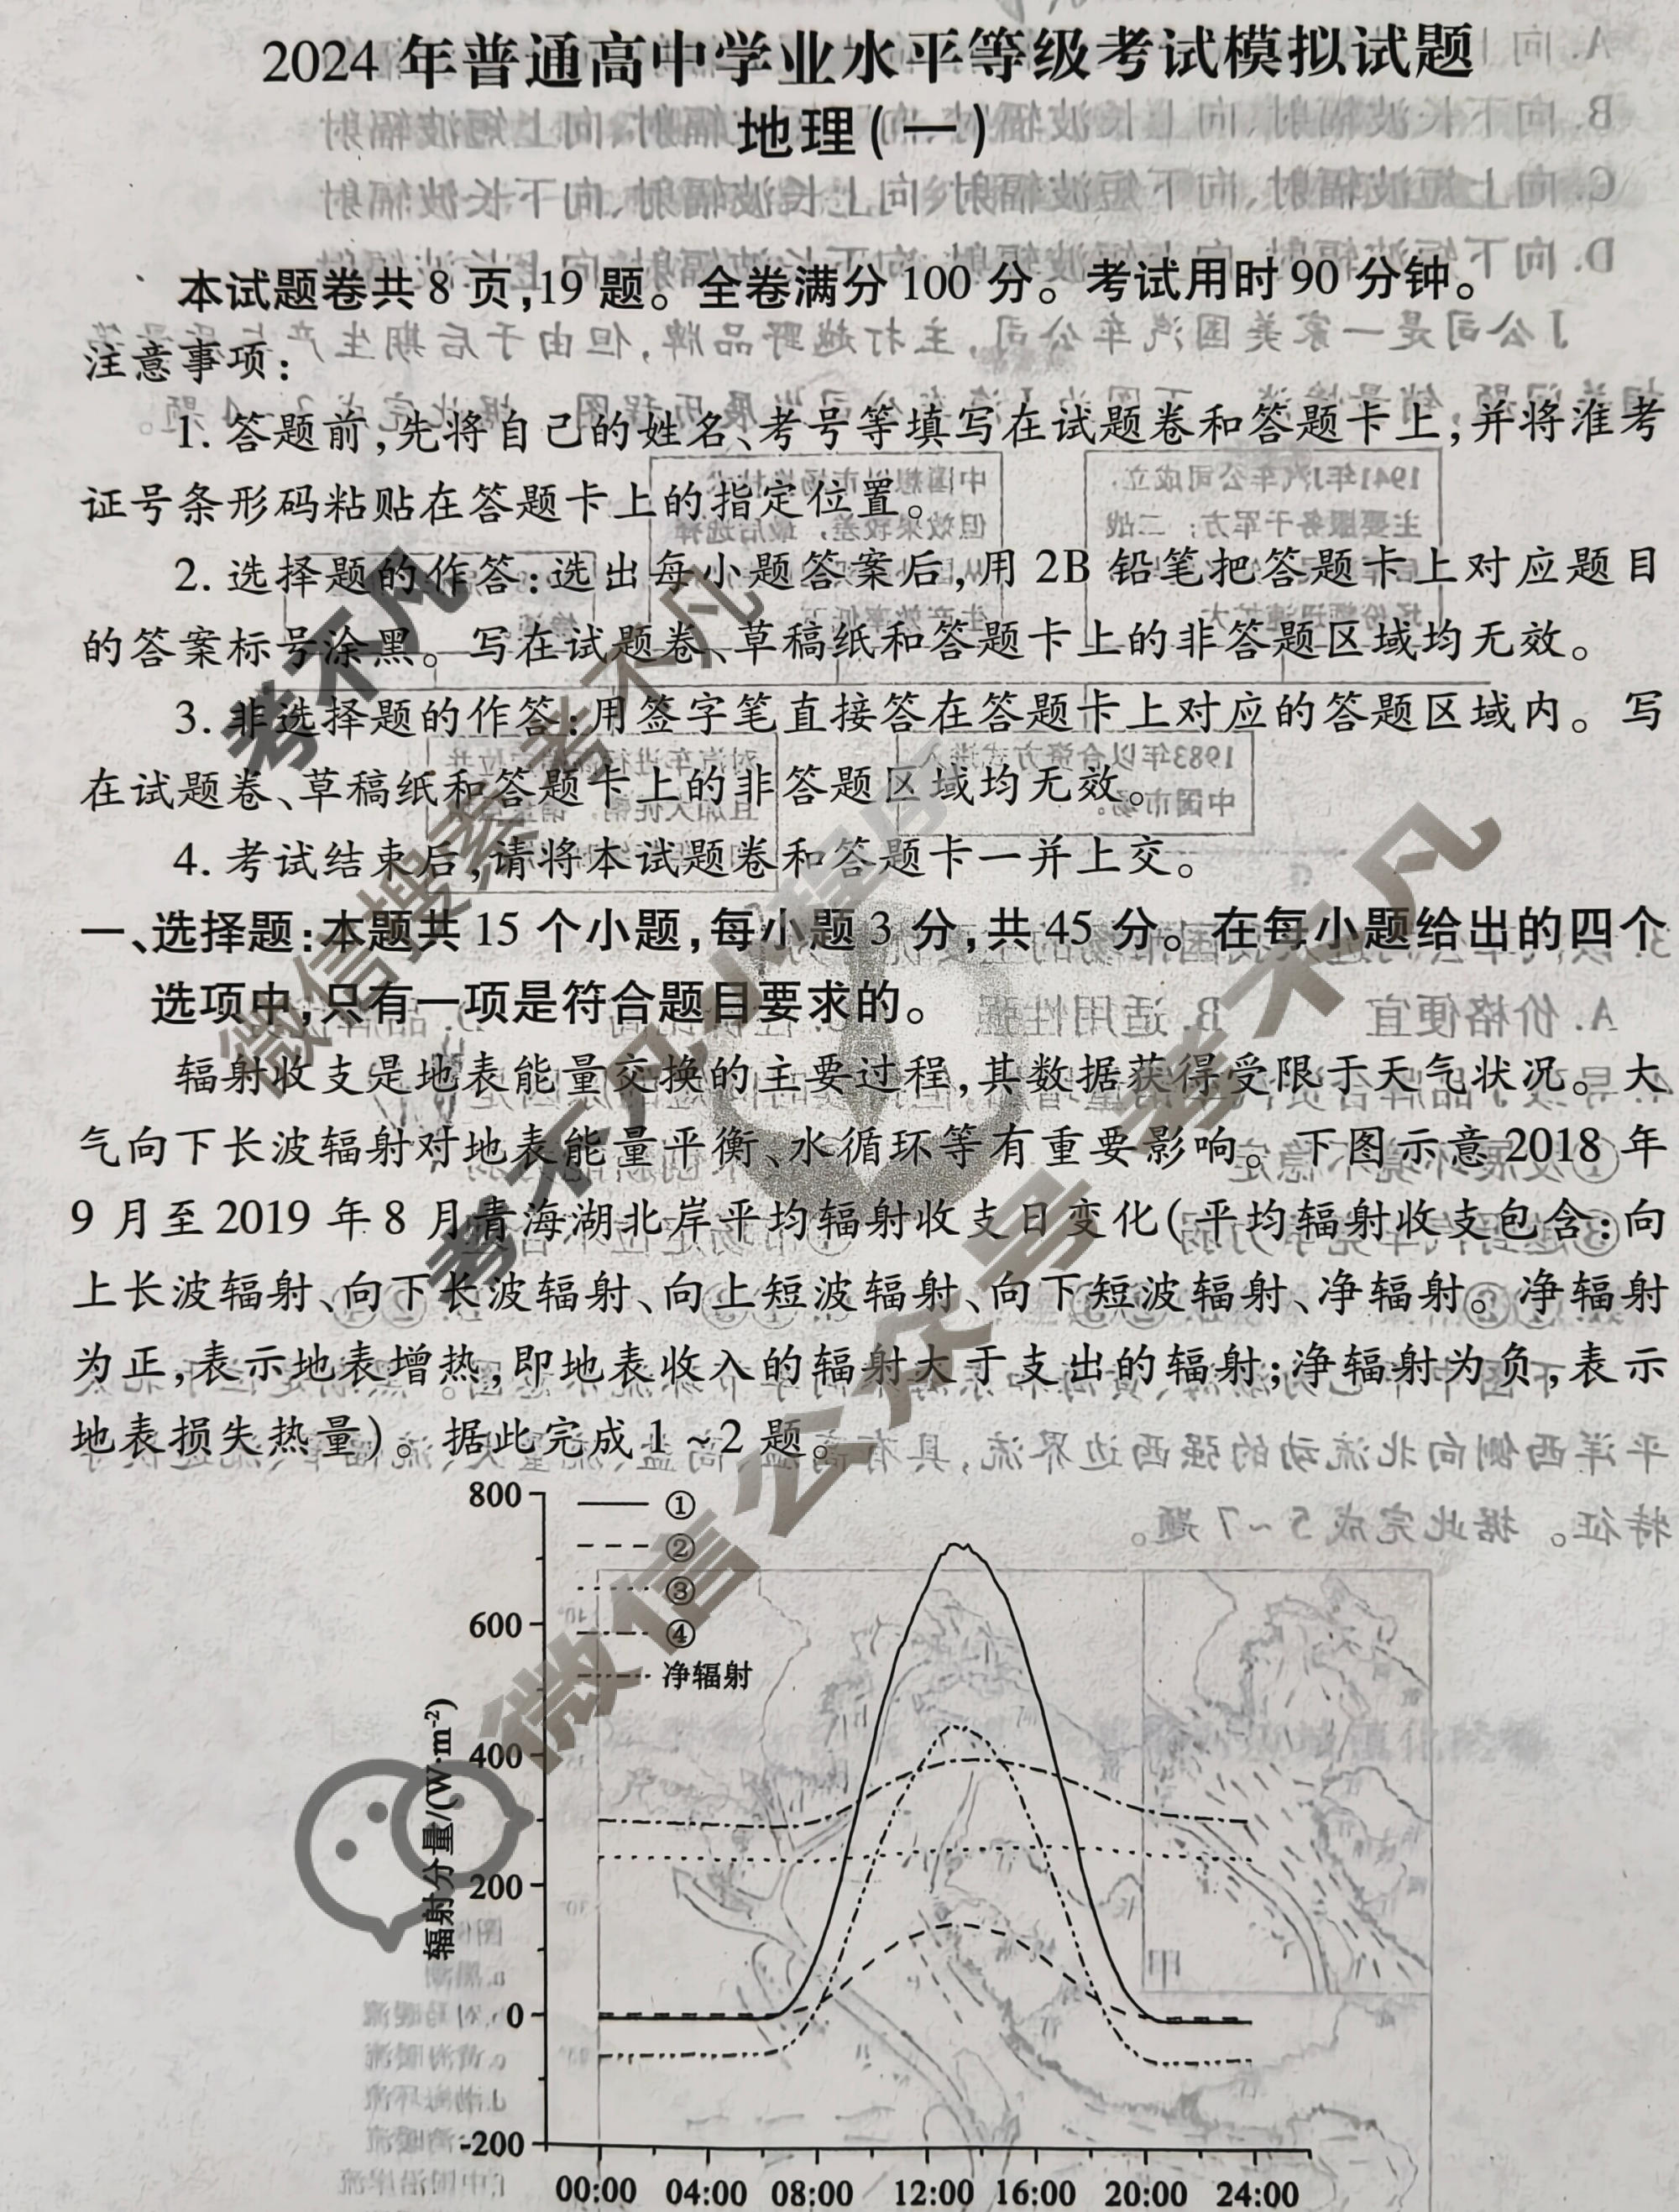 2024年普通高中学业水平等级考试模拟试题
地理(一)
本试题卷共8页,19题。全卷满分100分。考试用时90分钟。
注意事项:
1. 答题前,先将自己的姓名、考号等填写在试题卷和答题卡上,并将准考
证号条形码粘贴在答题卡上的指定位置。
2. 选择题的作答:选出每小题答案后,用2B铅笔把答题卡上对应题目
的答案标号涂黑。写在试题卷、草稿纸和答题卡上的非答题区域均无效。
3. 非选择题的作答:用签字笔直接答在答题卡上对应的答题区域内。写
在试题卷、草稿纸和答题卡上的非答题区域均无效。
4. 考试结束后,请将本试题卷和答题卡一并上交。
一、选择题:本题共15个小题,每小题3分,共45分。在每小题给出的四个
选项中,只有一项是符合题目要求的。
辐射收支是地表能量交换的主要过程,其数据获得受限于天气状况。大
气向下长波辐射对地表能量平衡、水循环等有重要影响。下图示意2018年
9月至2019年8月青海湖北岸平均辐射收支日变化(平均辐射收支包含:向
上长波辐射、向下长波辐射、向上短波辐射、向下短波辐射、净辐射。净辐射
为正,表示地表增热,即地表收入的辐射大于支出的辐射;净辐射为负,表示
地表损失热量)。据此完成1~2题。
800
600
400
200
0
-200
辐射分量/(W·m⁻²)
①
②
③
④
净辐射
00:00 04:00 08:00 12:00 16:00 20:00 24:00
考不凡
微信搜索 考不凡
考不凡小程序
微信公众号 考不凡